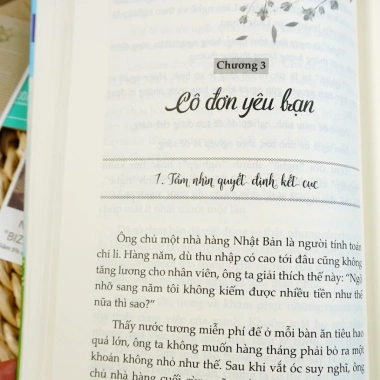 Chương 3
Cô đơn yêu bạn
1. Tầm nhìn quyết định kết cục
Ông chủ một nhà hàng Nhật Bản là người tính toán
chi li. Hàng năm, dù thu nhập có cao tới đâu cũng không
tăng lương cho nhân viên, ông ta giải thích thế này: “Ngộ
nhỡ sang năm tôi không kiếm được nhiều tiền như thế
nữa thì sao?”
Thấy nước tương miễn phí để ở mỗi bàn ăn tiêu hao
quá lớn, ông ta không muốn hàng tháng phải bỏ ra một
khoản không nhỏ như thế. Sau khi vắt óc suy nghĩ, ông
chủ nhà hàng cuối
"BIZ